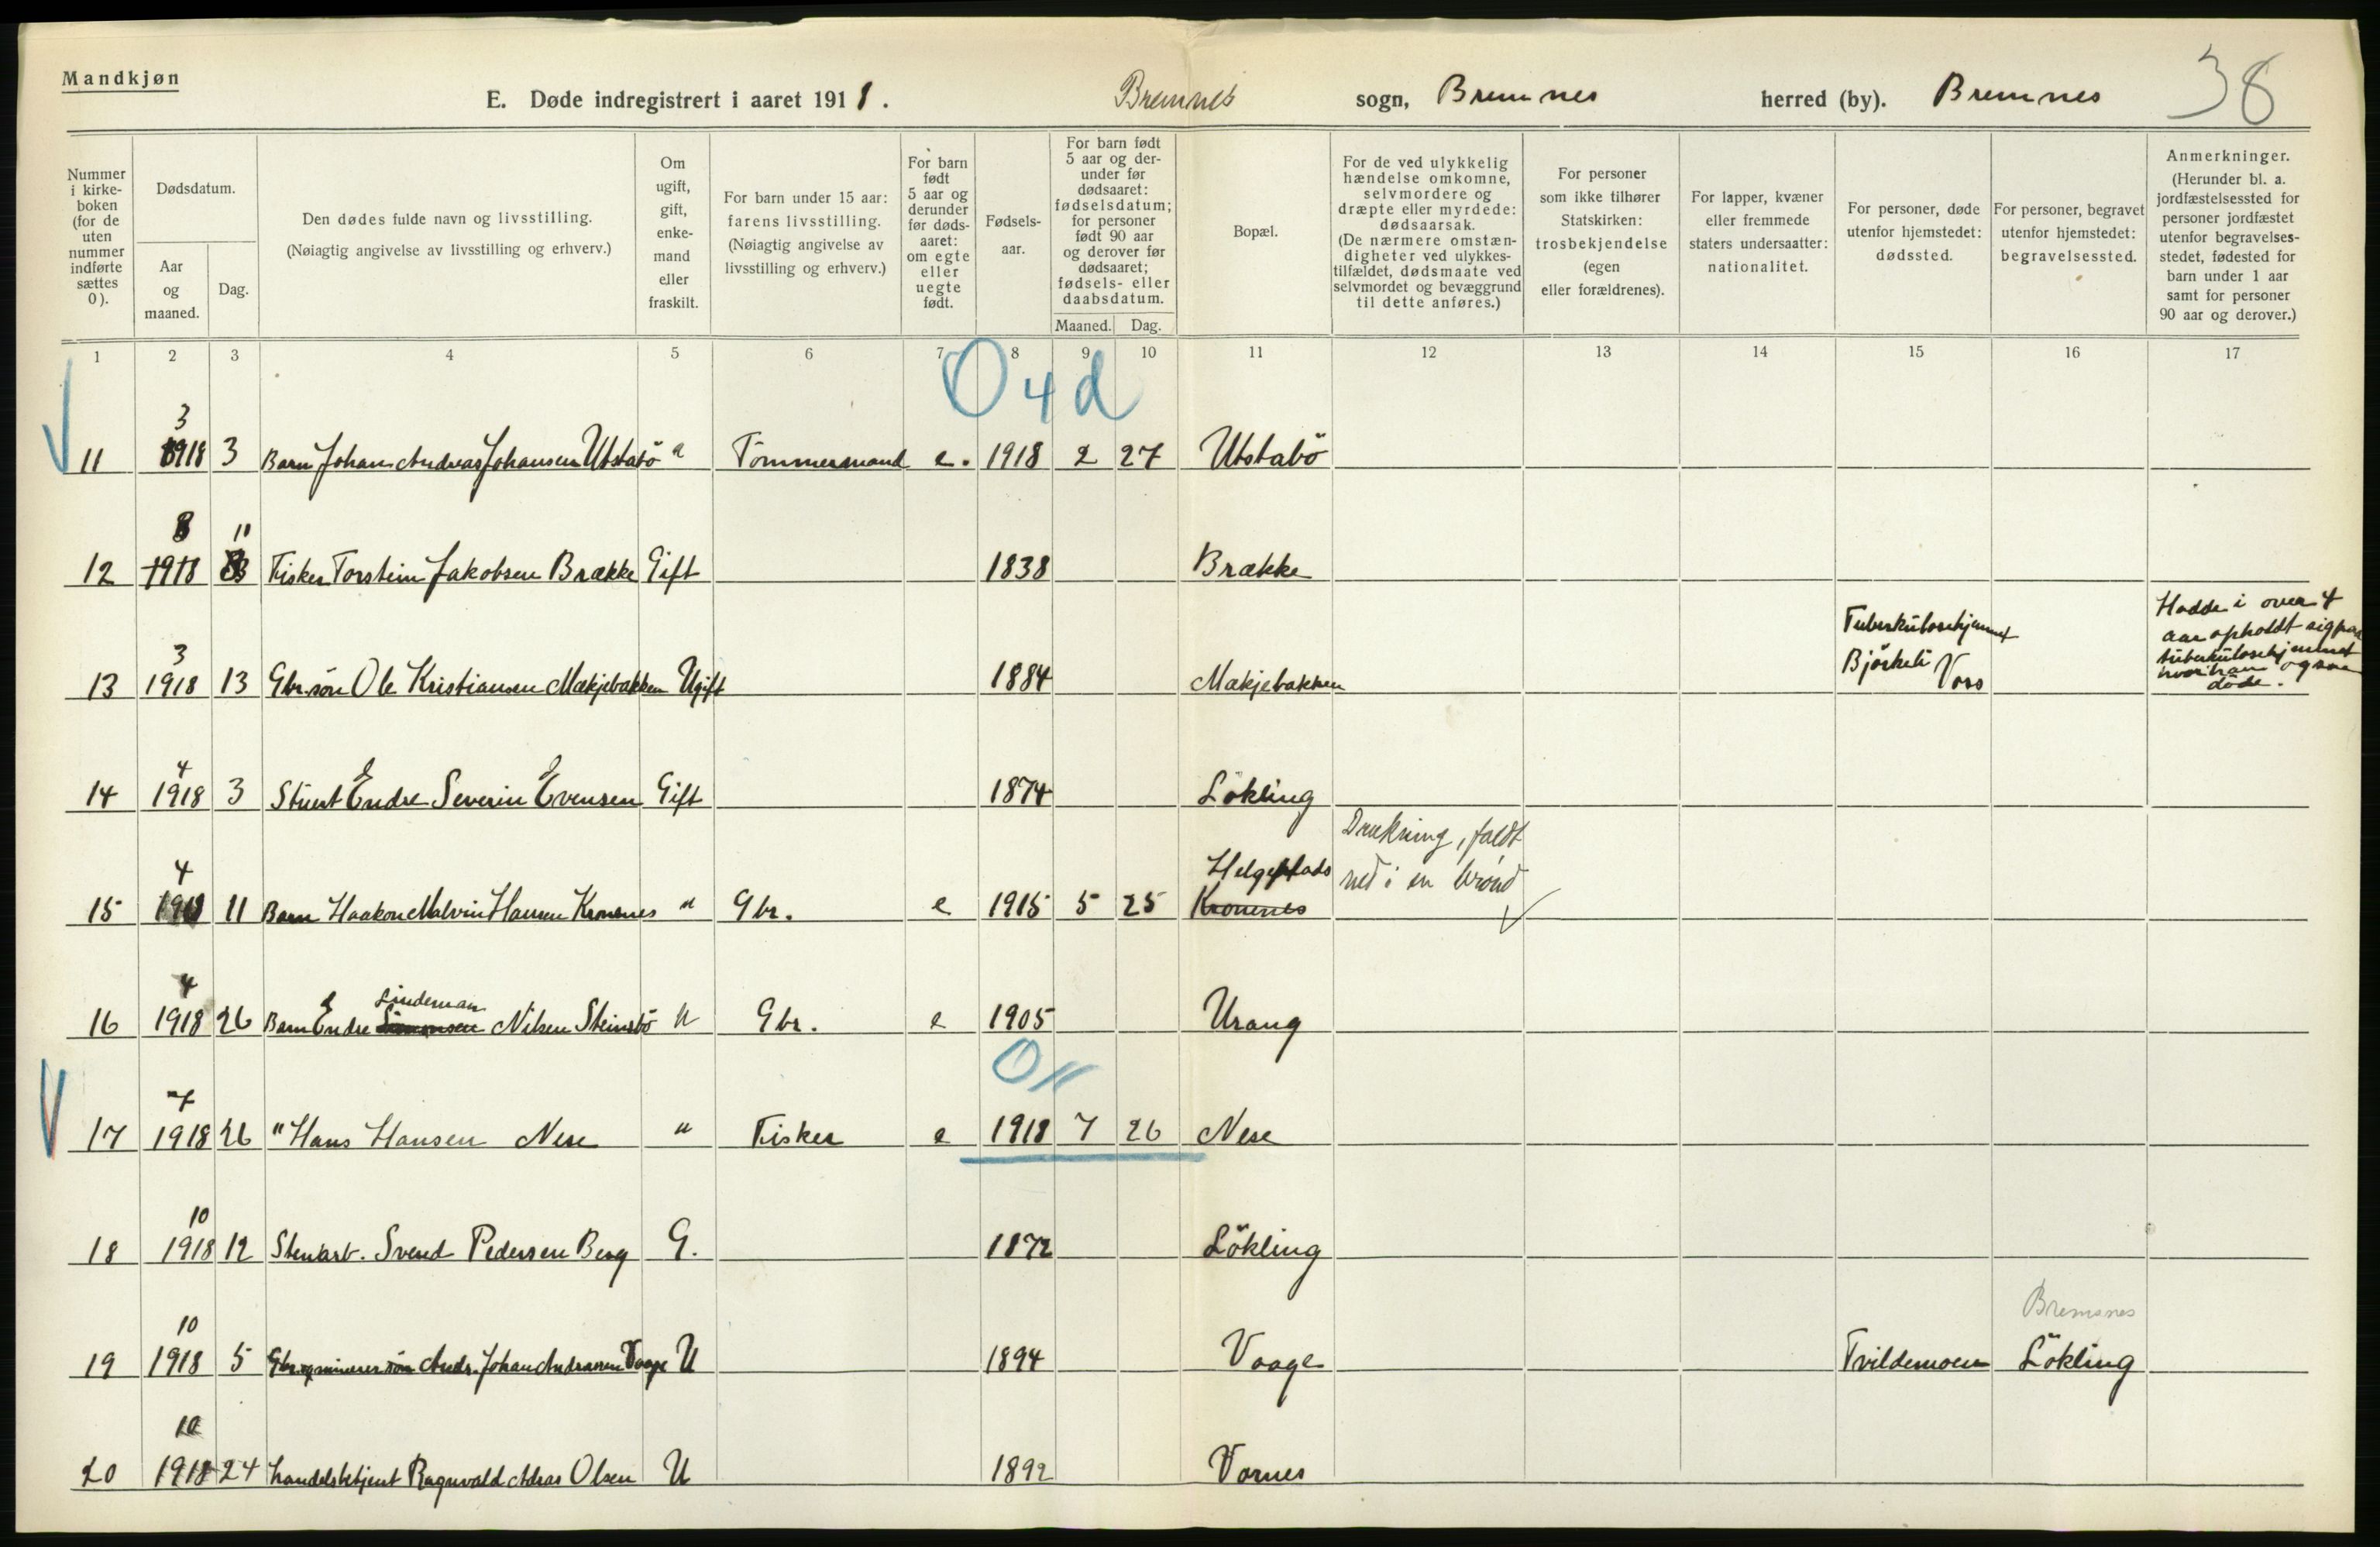 Mandkjøn
E. Døde indregistrert i aaret 1918. Bremnes sogn, Bremnes herred (by). Bremnes 38
Nummer i kirke-boken (for de uten nummer indførte sættes 0).
Dødsdatum.
Aar og maaned.
Dag.
Den dødes fulde navn og livsstilling.
(Nøiagtig angivelse av livsstilling og erhverv.)
Om ugift, gift, enke-mand eller fraskilt.
For barn under 15 aar: farens livsstilling.
(Nøiagtig angivelse av livsstilling og erhverv.)
For barn født 5 aar og derunder før døds-aaret: om egte eller uegte født.
Fødsels-aar.
For barn født 5 aar og der-under før dødsaaret: fødselsdatum; for personer født 90 aar og derover før dødsaaret; fødsels- eller daabsdatum.
Maaned. Dag.
Bopæl.
For de ved ulykkelig hændelse omkomne, selvmordere og dræpte eller myrdede: dødsaarsak.
(De nærmere omstæn-digheter ved ulykkes-tilfældet, dødsmaate ved selvmordet og bevæggrund til dette anføres.)
For personer som ikke tilhører Statskirken: trosbekjendelse (egen eller forældrenes).
For lapper, kvæner eller fremmede staters undersaatter: nationalitet.
For personer, døde utenfor hjemstedet: dødssted.
For personer, begravet utenfor hjemstedet: begravelsessted.
Anmerkninger.
(Herunder bl. a. jordfæstelsessted for personer jordfæstet utenfor begravelses-stedet, fødested for barn under 1 aar samt for personer 90 aar og derover.)
1 2 3 4 5 6 7 8 9 10 11 12 13 14 15 16 17
O 4 d
3
11 1918 3 Barn Johan Andreas Johansen Utstabö " Tömmermand e. 1918 2 27 Utstabö
8 11
12 1918 Fisker Torstein Jakobsen Brække Gift 1838 Brække
3
13 1918 13 Gbr.sön Ole Kristiansen Mækjebakken Ugift 1884 Mækjebakken
Tuberkulosehjemmet
Björkeli Voss
Hadde i over 4
aar opholdt sig paa
tuberkulosehjemmet
hvor han ogsaa
döde.
4
14 1918 3 Stuert Endre Severin Evensen Gift 1874 Lökling
4
15 1918 11 Barn Haakon Malvin Hansen Kronenes " Gbr. e 1915 5 25 Helgeplads
Kronenes
Drukning, faldt
ned i en brønd
4
Lindeman
16 1918 26 Barn Endre Simonsen Nilsen Steinsbö " Gbr. e 1905 Urang
O "
7
17 1918 26 " Hans Hansen Nese " Fisker e 1918 7 26 Nese
10
18 1918 12 Stenarb. Svend Pedersen Berg G. 1872 Lökling
10
Bremsnes
19 1918 5 Gbr. og minerer sön Andr. Johan Andreasen Vaage U 1894 Vaage Tvildemoen Lökling
10
20 1918 24 handelsbetjent Ragnvald Adras Olsen U 1892 Vornes